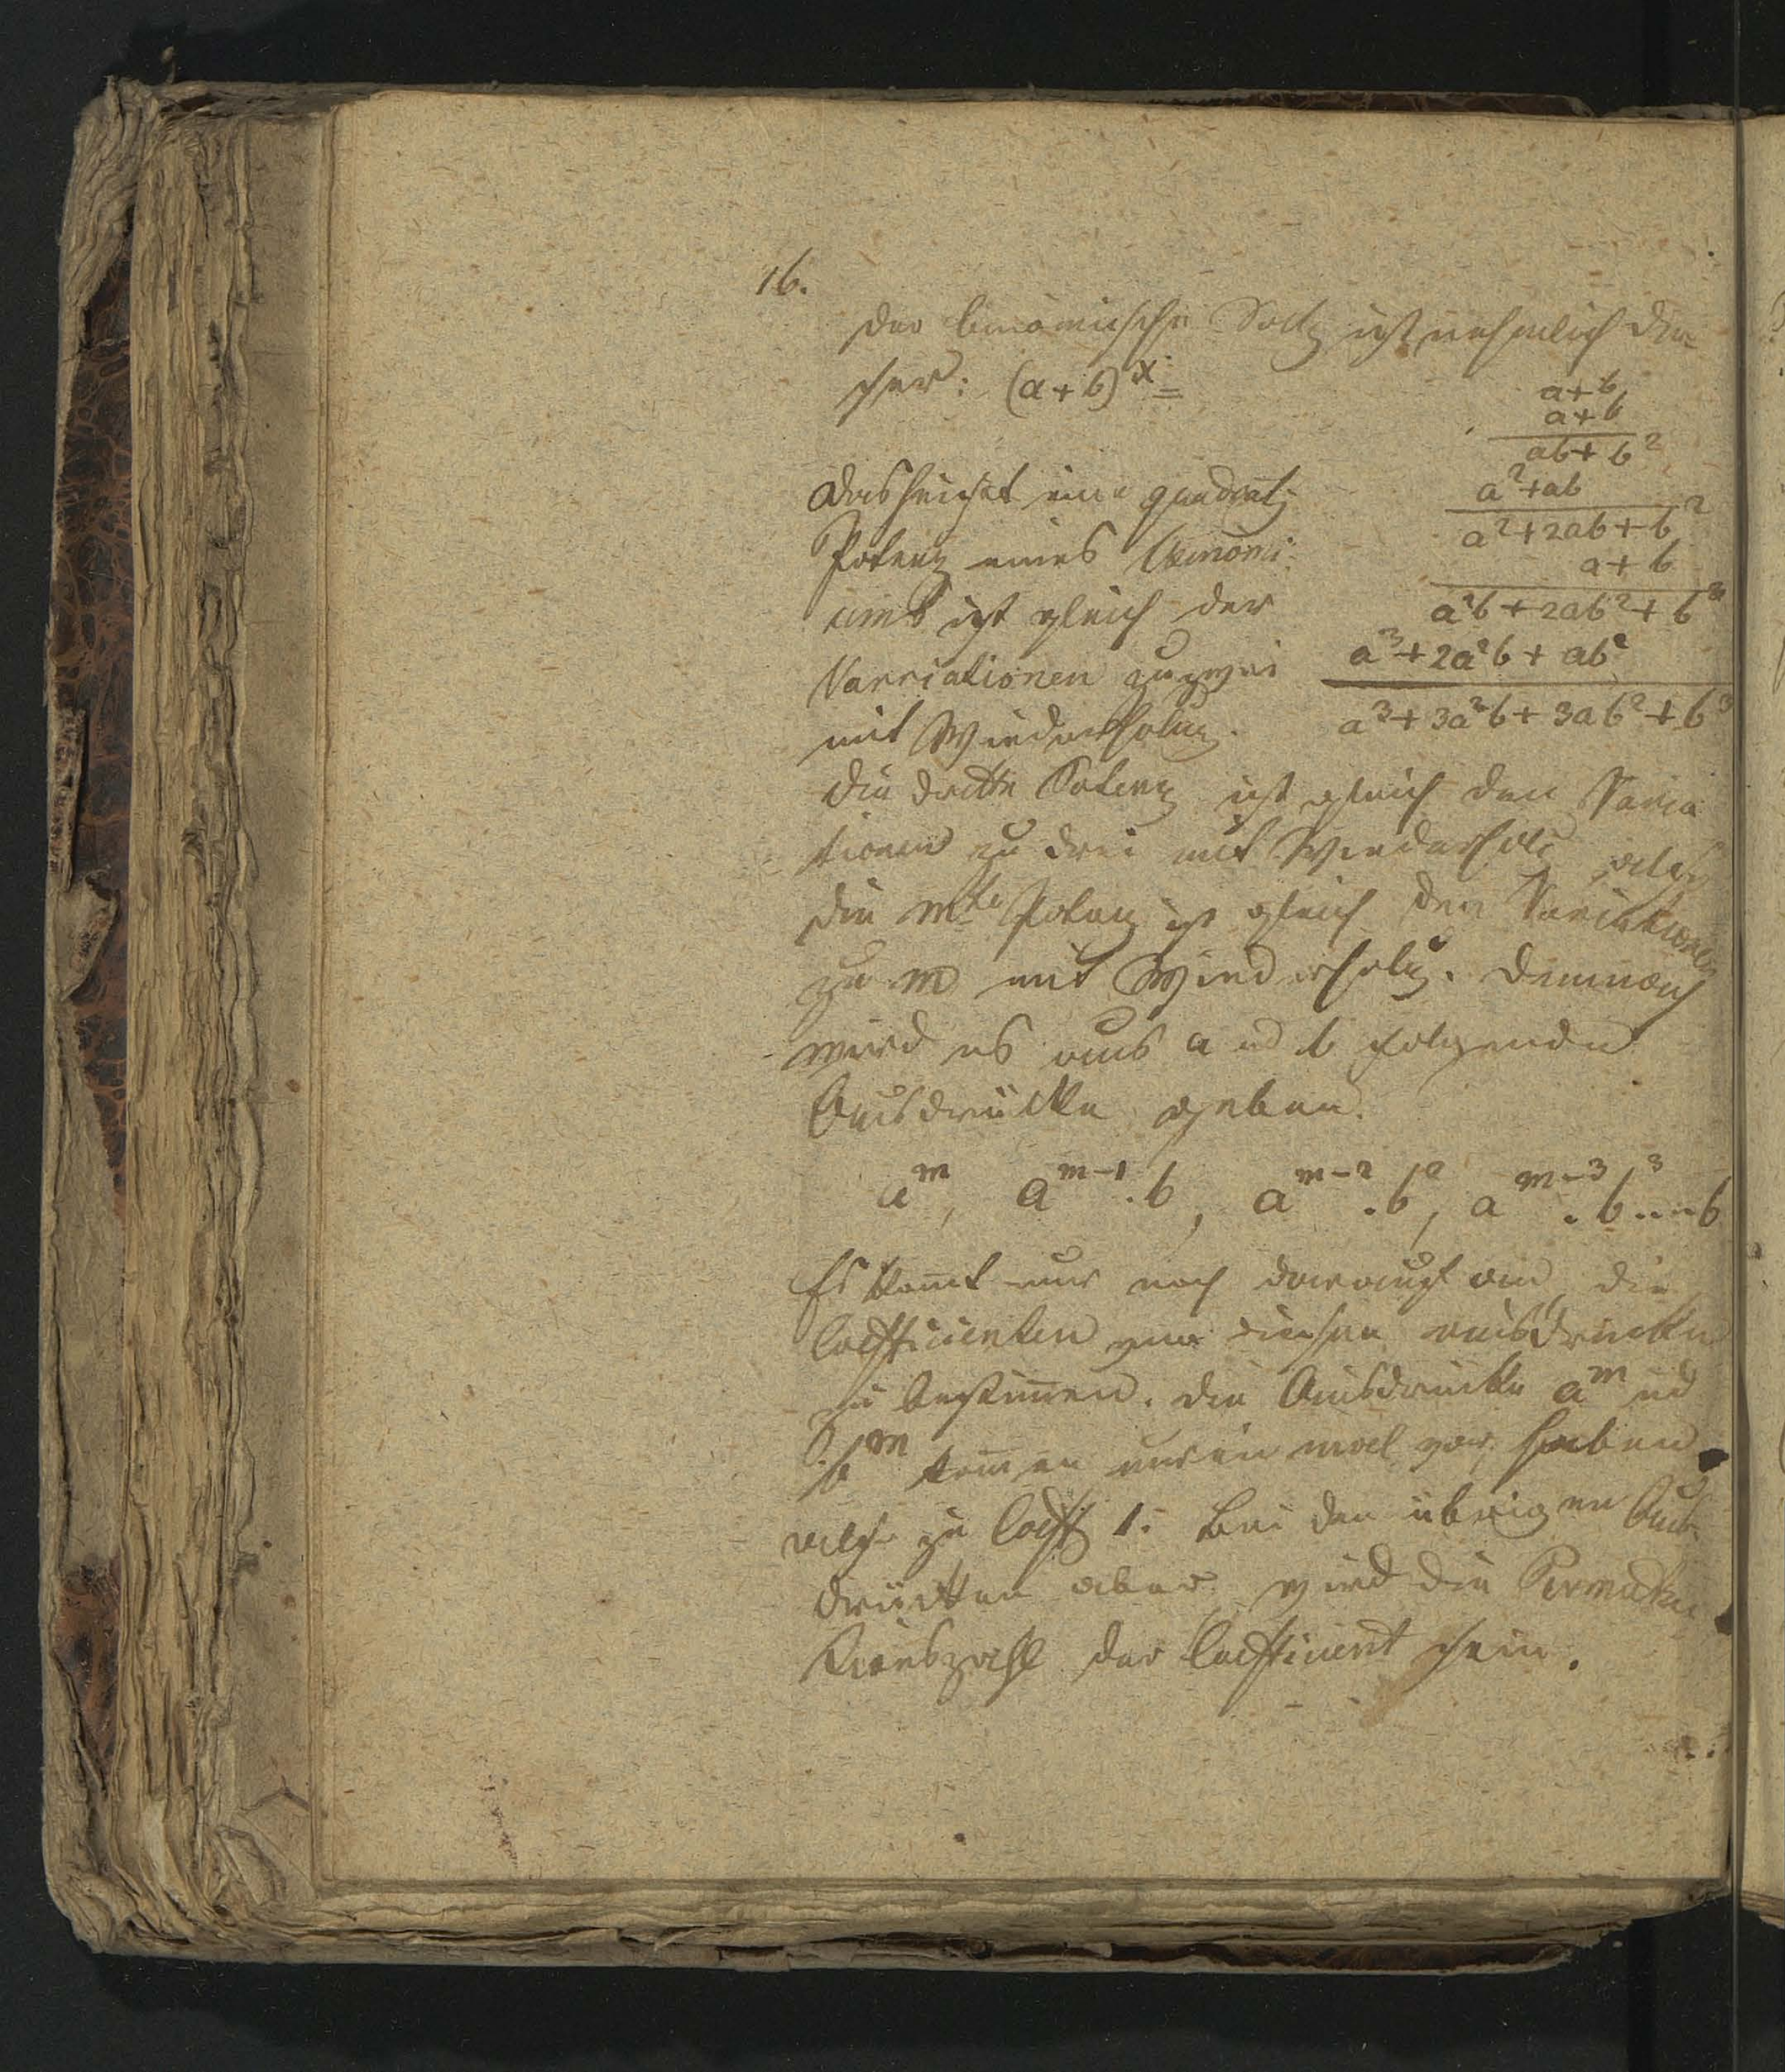 16.
Der binomische Satz ist nehmlich die-
ser: (a+b)^x =
a+b
a+b
ab+b²
a²+ab
a²+2ab+b²
a+b
a²b+2ab²+b³
a³+2a²b+ab²
a³+3a²b+3ab²+b³
das heißt eine quadrat
Potenz eines Binomi
ums ist gleich der
Varriationen zu zwei
mit Wiederholung.
die dritte Potenz ist gleich den Varia
tionen zu drei mit Wiederholg oder
die mte Potenz ist gleich den Variationen
zu m mit Wiederholg. Demnach
wird es aus a und b folgende
Ausdrücke geben.
a^m, a^m-1.b, a^m-2.b², a^m-3.b³....b
Es komt nur noch darauf an, die
Coefficienten von diesen ausdrücken
zu bestimen. Die Ausdrücke a^m ud
b^m komen nur ein mal vor, haben
also zu Coeff 1. Bei den übrigen Aus-
drücken aber wird die Permuta
tionszahl der Coefficient sein.